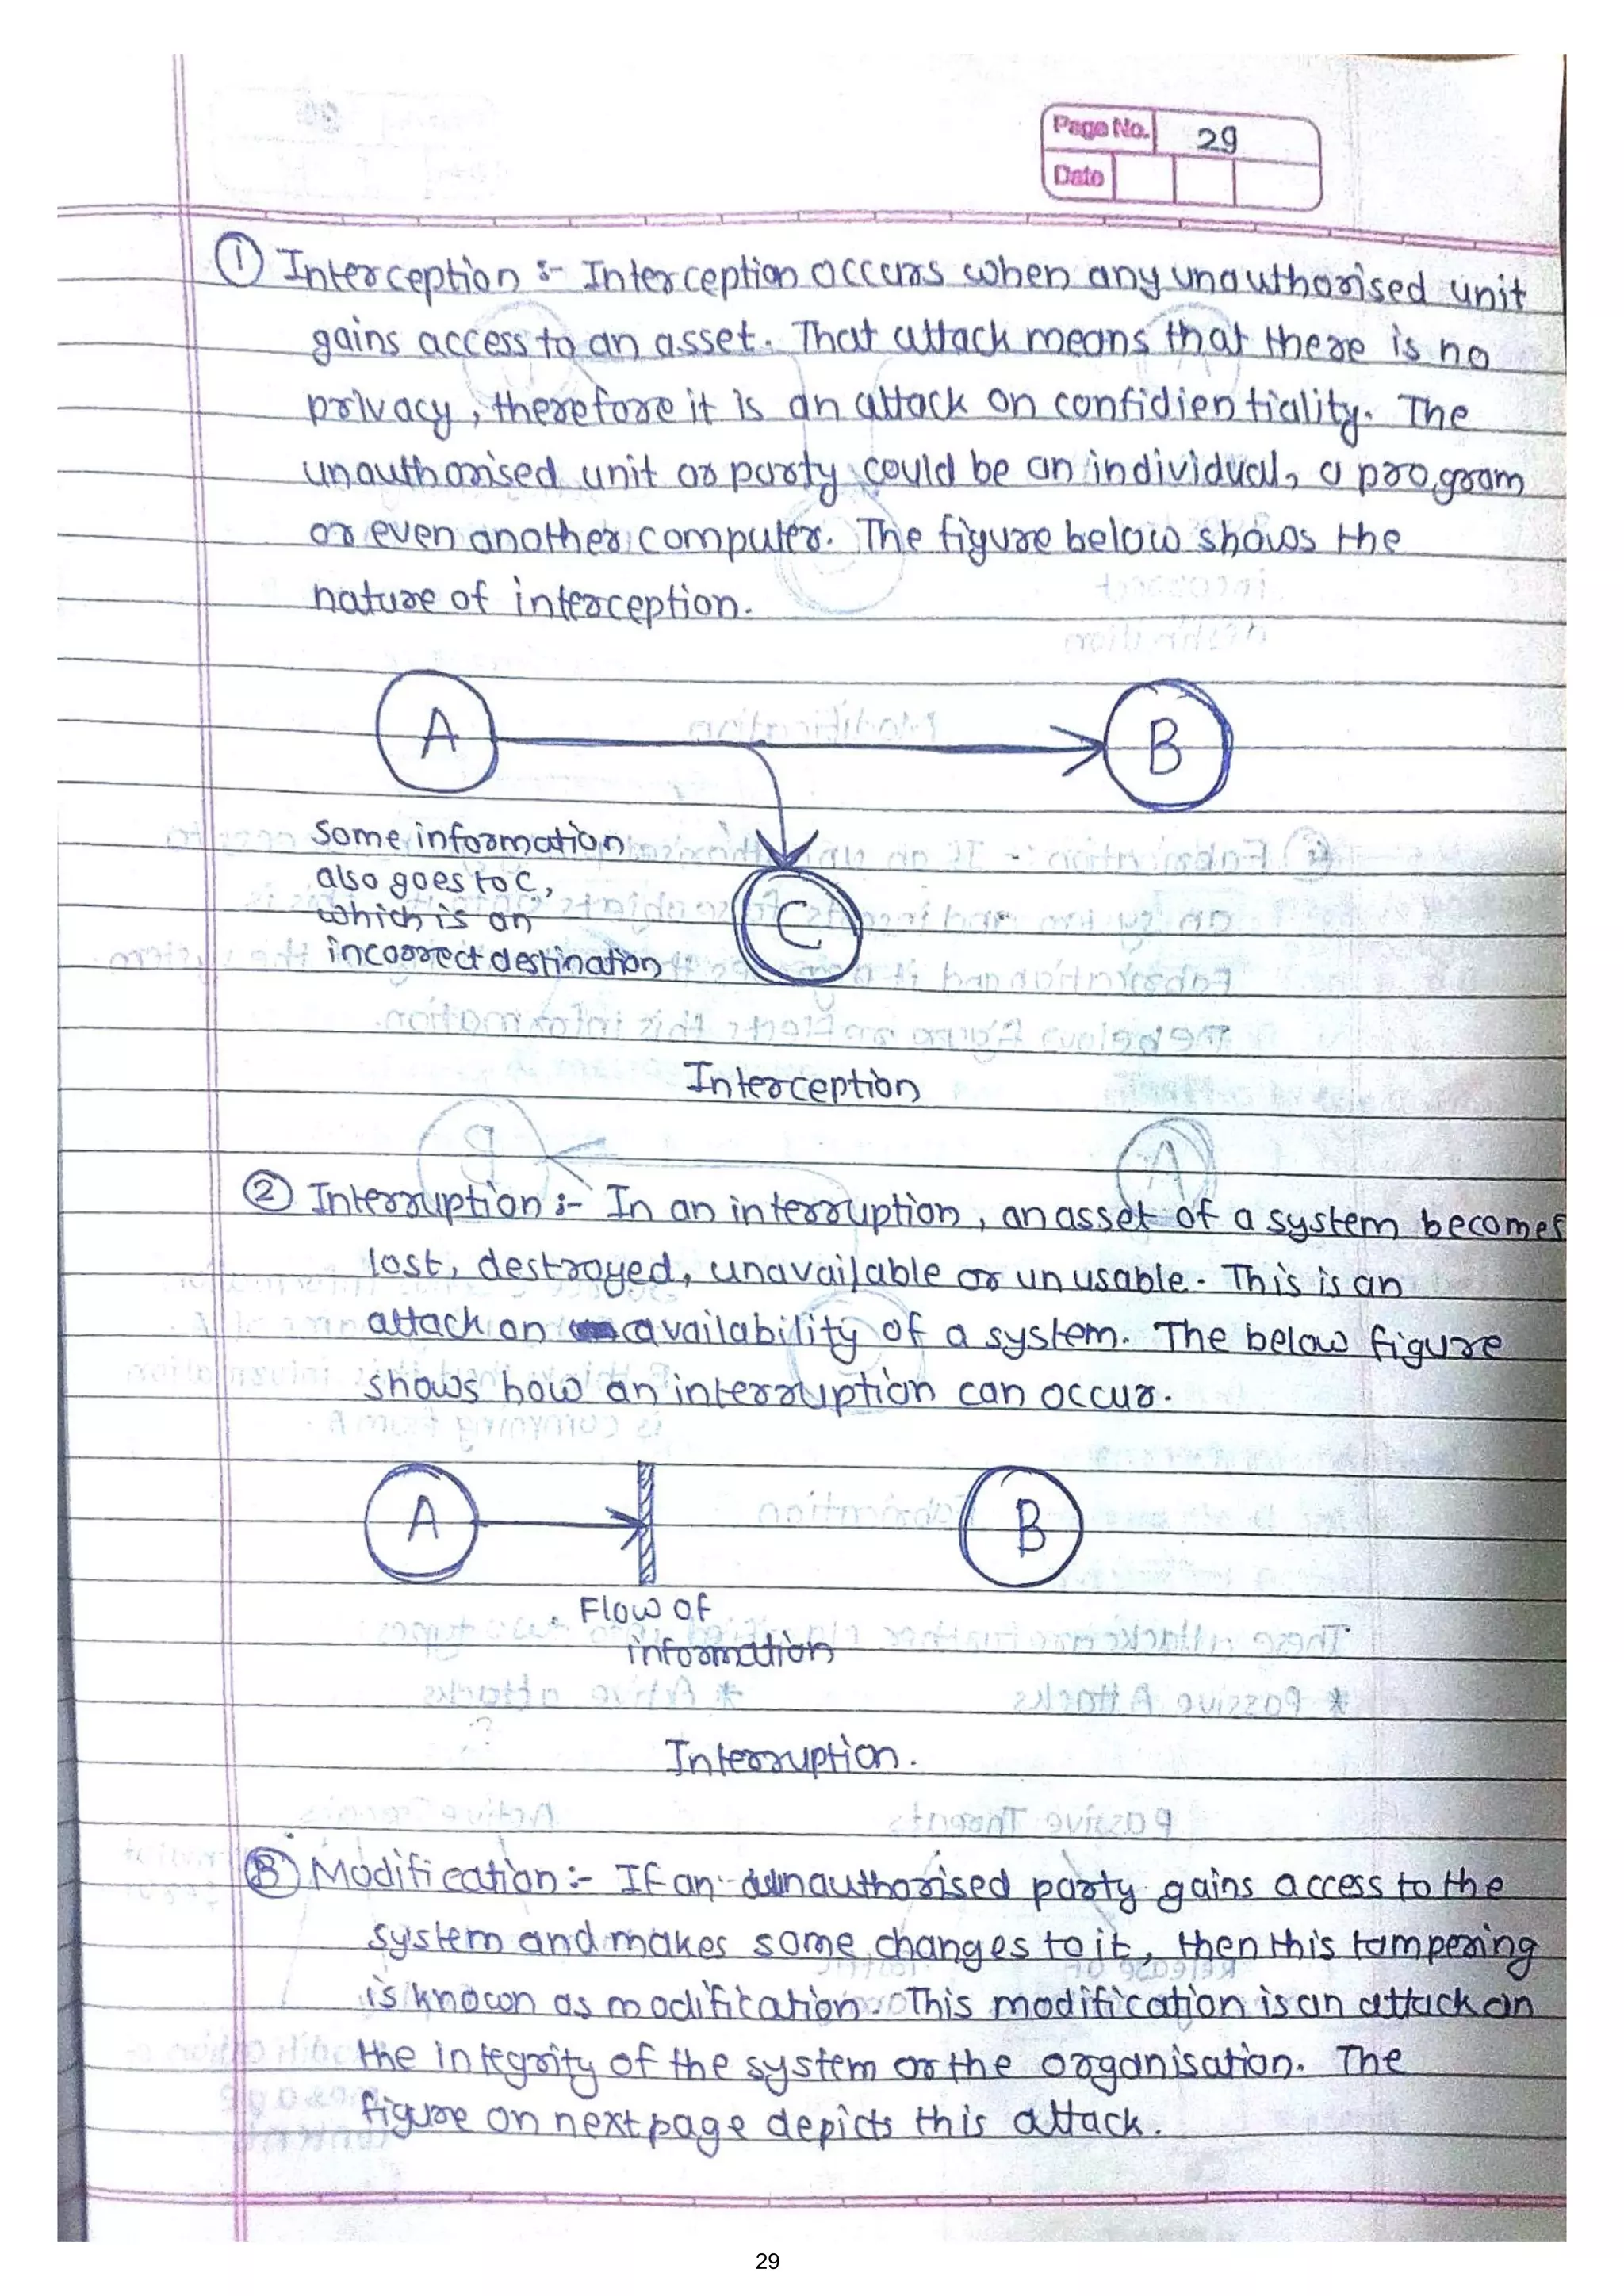 Page No. 29
Date
① Interception :- Interception occurs when any unauthorised unit
gains access to an asset. That attack means that there is no
privacy, therefore it is an attack on confidientiality. The
unauthorised unit or party could be an individual, a program
or even another computer. The figure below shows the
nature of interception.
A
B
Some information
also goes to C,
which is an
incorrect destination
C
Interception
② Interruption :- In an interruption, an asset of a system becomes
lost, destroyed, unavailable or unusable. This is an
attack on availability of a system. The below figure
shows how an interruption can occur.
A
B
Flow of
information
Interruption.
③ Modification :- If an unauthorised party gains access to the
system and makes some changes to it, then this tampering
is known as modification. This modification is an attack on
the integrity of the system or the organisation. The
figure on next page depicts this attack.
29